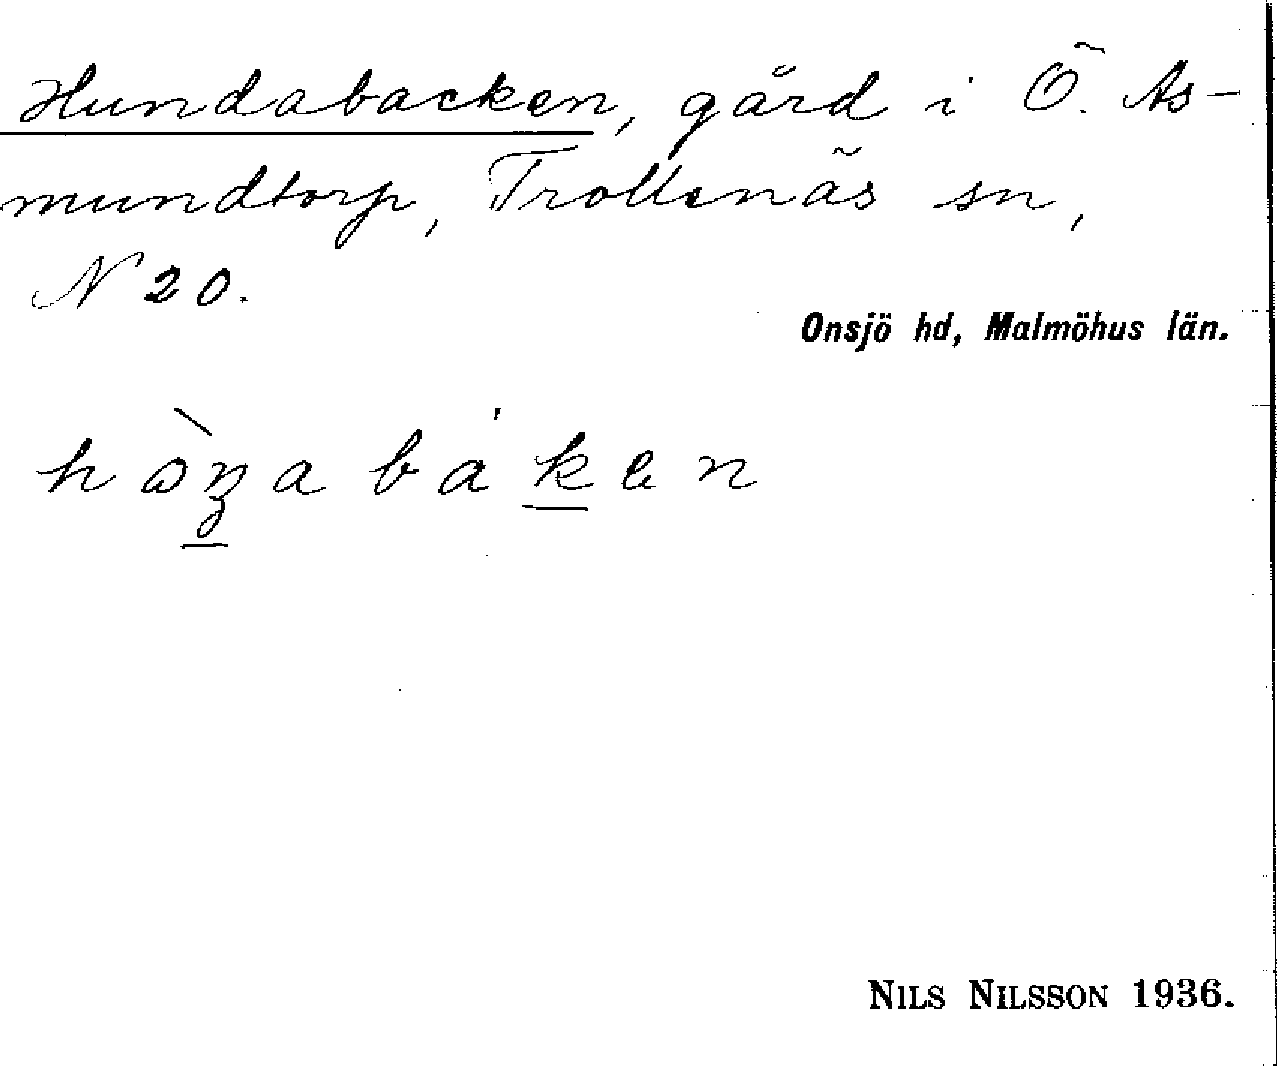 Hundabacken, gård i Ö. As-
mundtorp, Trollenäs sn,
N 20.
Onsjö hd, Malmöhus län.
NILS NILSSON 1936.